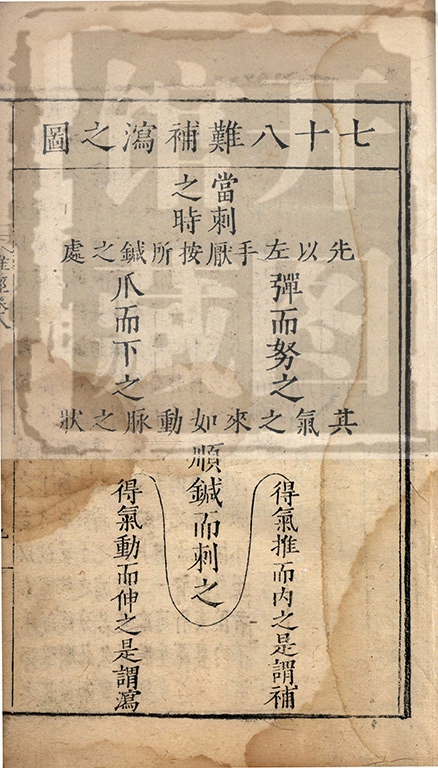 七十八難補瀉之圖
當刺
之時
先以左手厭按所鍼之處
彈而努之
爪而下之
其氣之來如動脉之狀
順鍼而刺之
得氣推而内之是謂補
得氣動而伸之是謂瀉